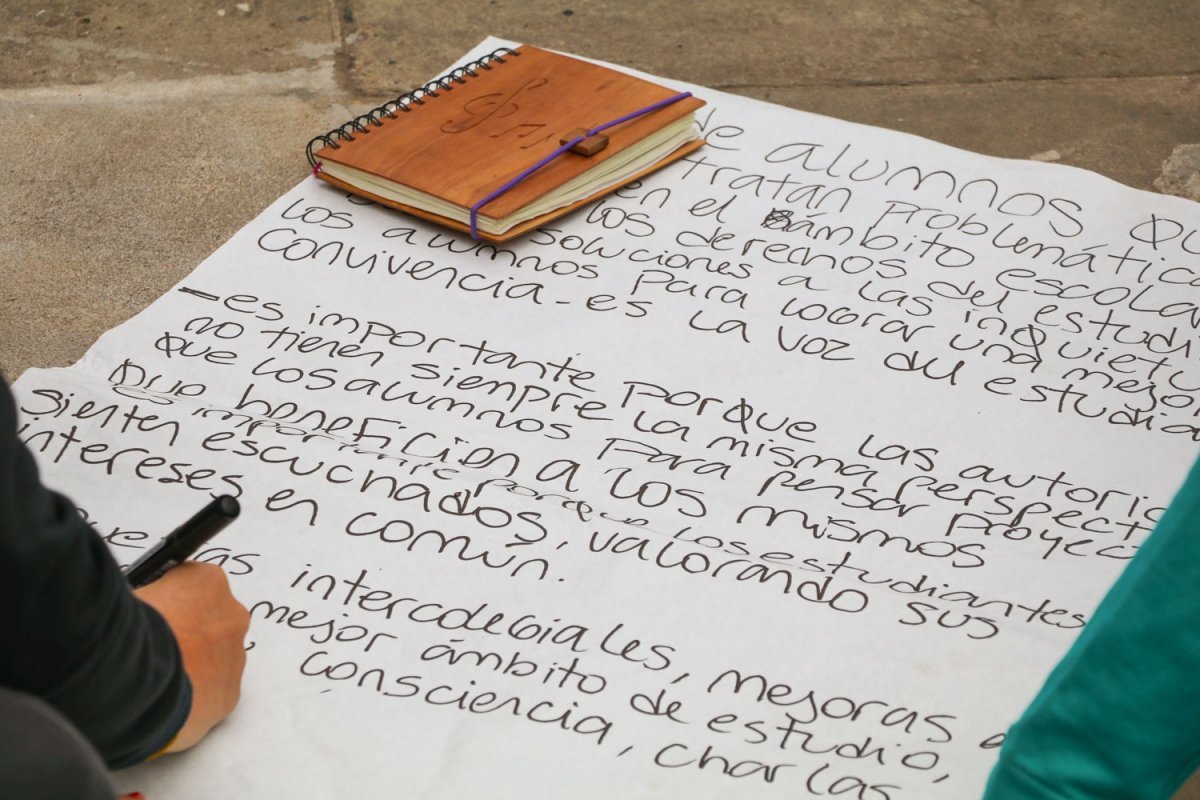 de alumnos qu
tratan problemática
en el ámbito escolar
los derechos del estudi
soluciones a las inquietu
los alumnos para lograr una mejo
convivencia - es la voz del estudia
- es importante porque las autorid
no tienen siempre la misma perspect
que los alumnos para pensar proyec
Que beneficien a los mismos
es importante porque los estudiantes
sienten escuchados, valorando sus
intereses en común.
intercolegiales, mejoras
mejor ámbito de estudio,
consciencia, charlas